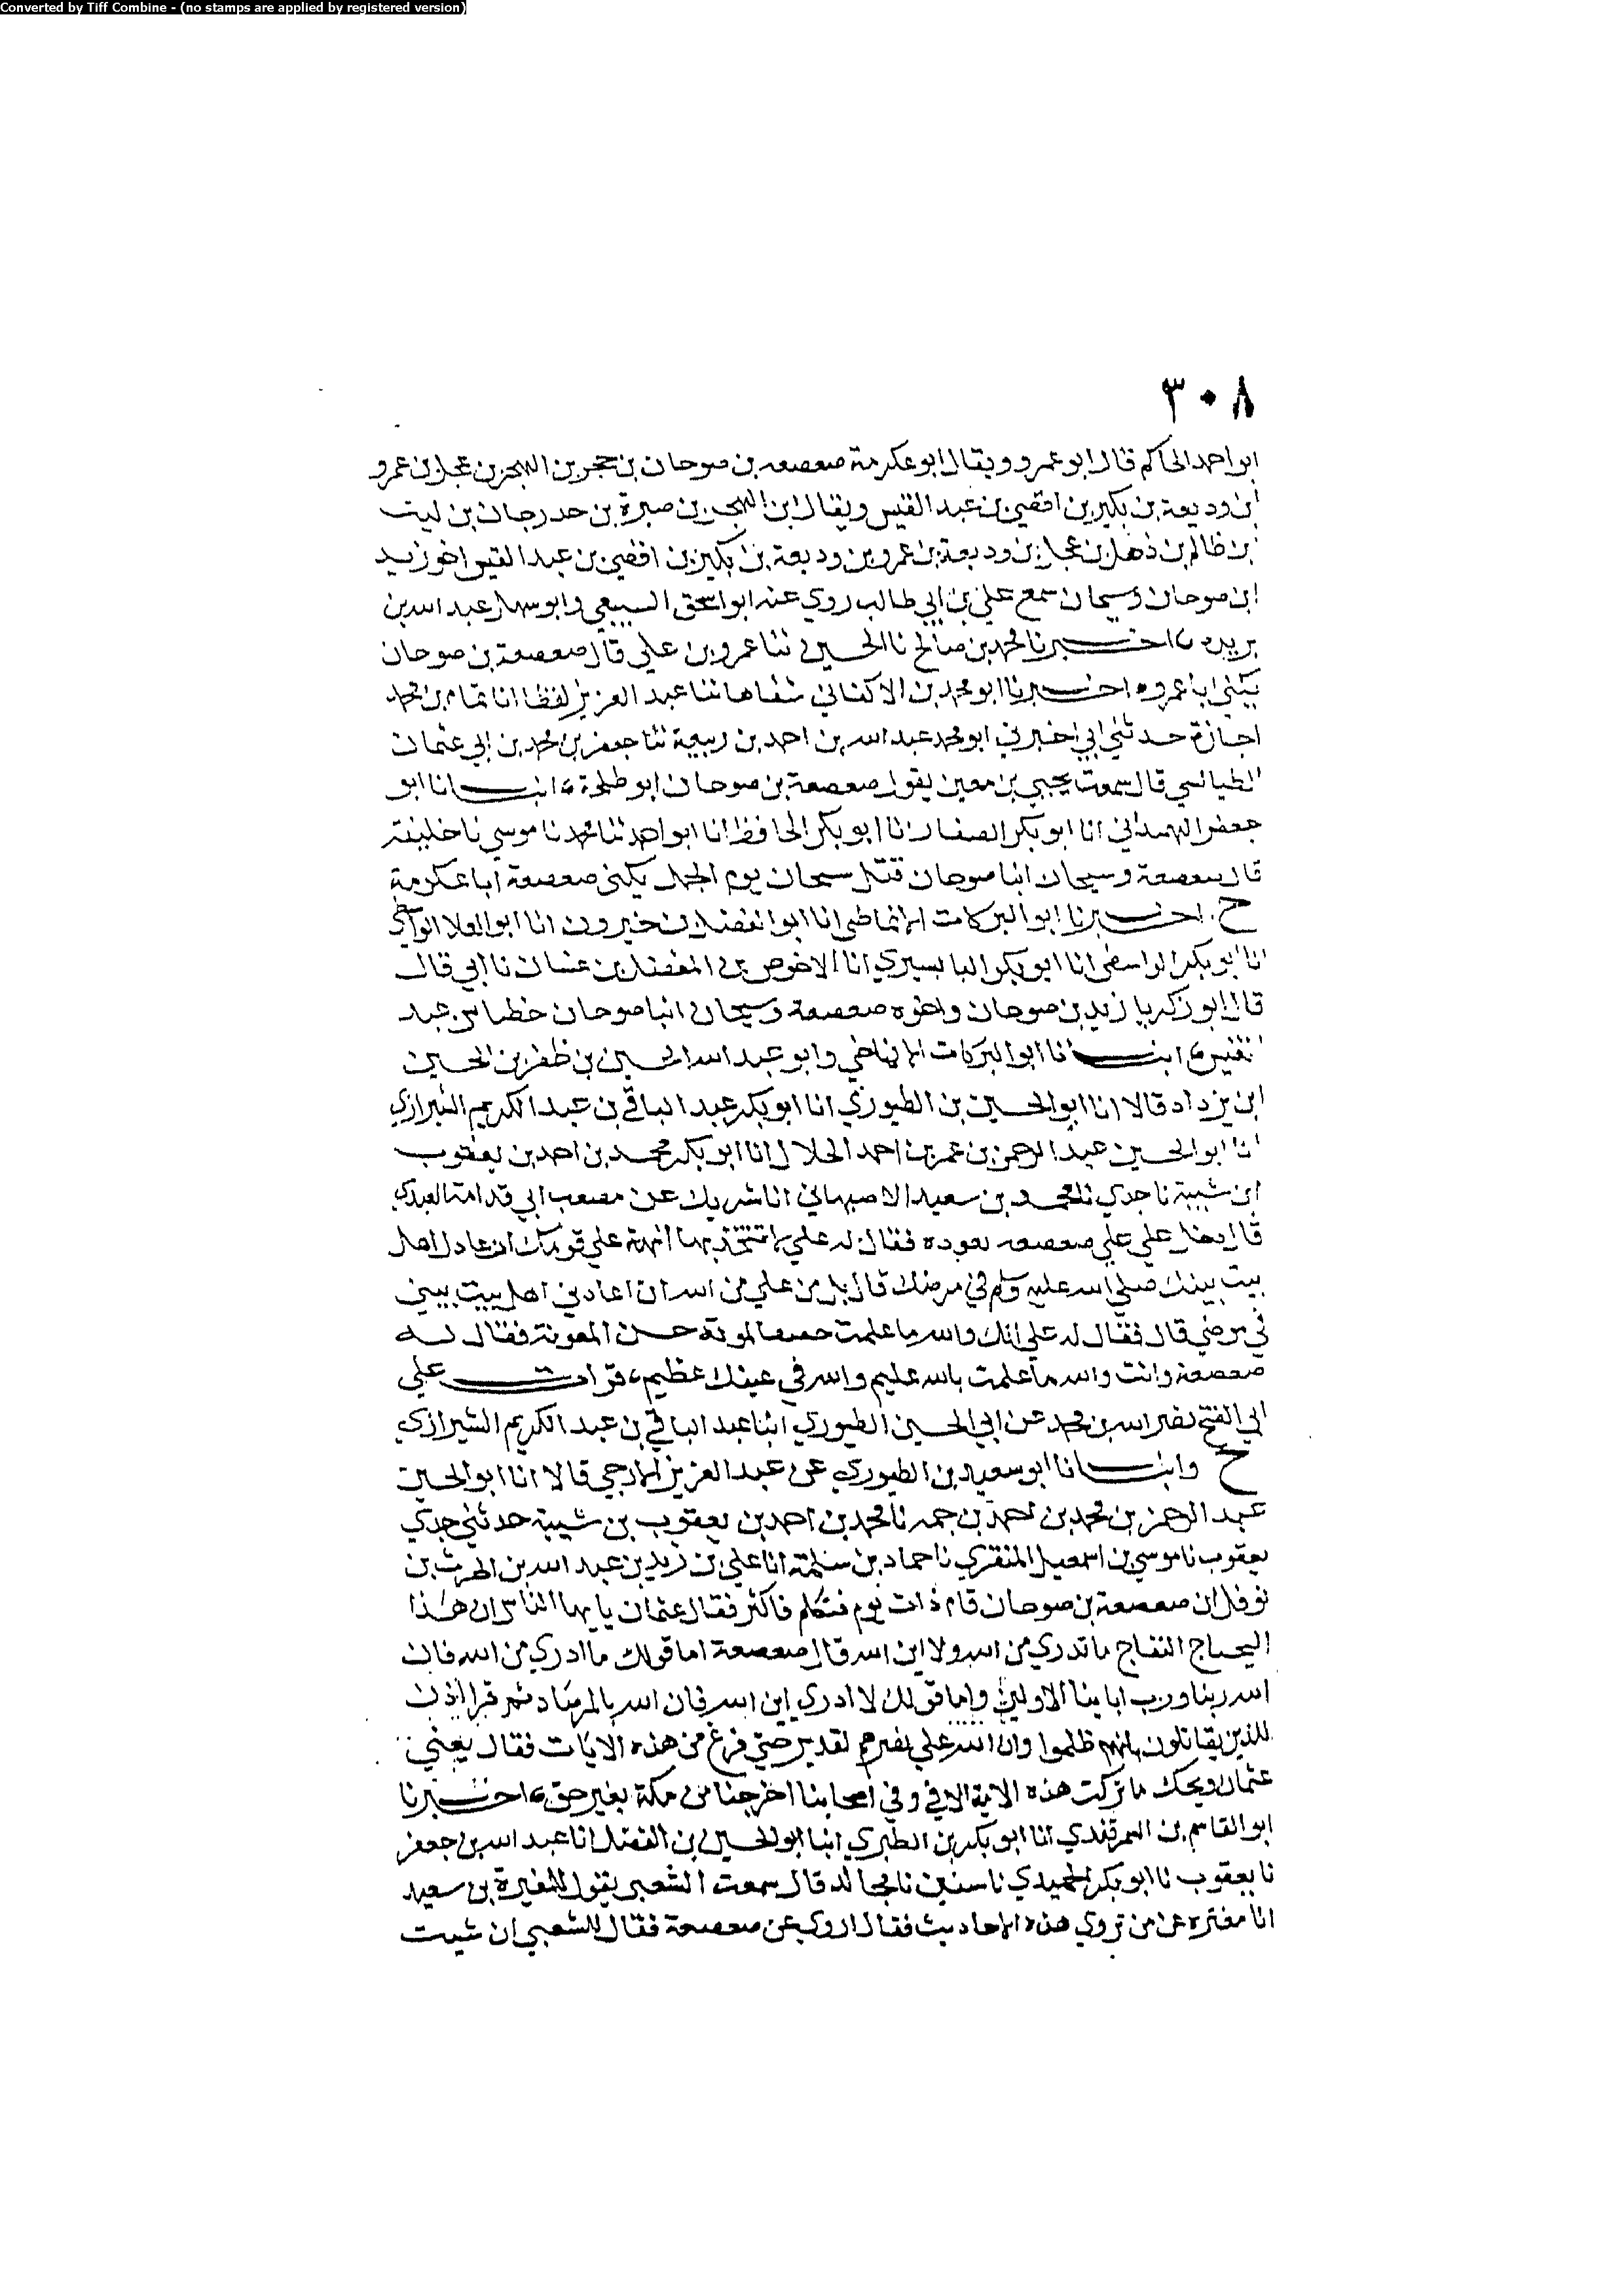 Converted by Tiff Combine - (no stamps are applied by registered version)
٣٠٨
ابو احمد الحاكم قال ابو عمرو ويقال ابو عكرمة صعصعه بن صوحان بن حجر بن الهجرن بن عجل بن عمرو
ابن وديعة بن بكير بن افصي بن عبد القيس ويقال ابن الهجرن بن صبرة بن حدرجان بن ليث
بن ظالم بن ذهل بن عجل بن وديعة بن عمرو بن وديعة بن بكير بن افصي بن عبد القيس اخو زيد
ابن صوحان وسيحان سمع علي بن ابي طالب روي عنه ابو اسحق السبيعي وابو سهل عبد الله بن
بريده اخبرنا محمد بن صالح نا الحسين ثنا عمرو بن علي قال صعصعة بن صوحان
يكنى ابا عمرو اخبرنا ابو محمد بن الاكفاني شفاها ثنا عبد العزيز لفظا انا تمام بن محمد
اجازة حدثني ابي اخبرني ابو محمد عبد الله بن احمد بن ربيعة ثنا جعفر بن محمد بن ابي عثمان
الطيالسي قال سمعت يحيي بن معين يقول صعصعة بن صوحان ابو طلحة انبانا ابو
جعفر الهمداني انا ابو بكر الصفار انا ابو بكر الحافظ انا ابو احمد ثنا محمد نا موسي نا خليفة
قال صعصعة وسيحان ابنا صوحان قتل سيحان يوم الجمل يكنى صعصعة ابا عكرمة
ح اخبرنا ابو البركات الانماطي انا ابو الفضل بن خيرون انا ابو العلا الواسطي
انا ابو بكر الواسطي انا ابو بكر البابسيري انا الاخوص بن المفضل بن غسان نا ابي قال
قال ابو زكريا زيد بن صوحان واخوه صعصعة وسيحان ابنا صوحان خطبا من عبد
القيس انبانا ابو البركات الانماطي وابو عبد الله الحسين بن ظفر بن الحسين
ابن يزداد قالا انا ابو الحسين بن الطيوري انا ابو بكر عبد الباقي بن عبد الكريم الشيرازي
انا ابو الحسين عبد الرحمن بن عمر بن احمد الخلال انا ابو بكر محمد بن احمد بن يعقوب
ابن شيبة نا جدي نا محمد بن سعيد الاصبهاني انا شريك عن مصعب ابي قدامة العبدي
قال دخل علي علي صعصعه يعوده فقال له علي لا تتخذ بها ابهة علي قومك ان عادك اهل
بيت نبيك صلي الله عليه وسلم في مرضك قال بل من علي من الله ان اعادني اهل بيت نبيي
في مرضي قال فقال له علي انك والله ما علمت خفيف المونة حسن المعونة فقال له
صعصعة وانت والله ما علمت بالله عليم والله في عينك عظيم قرات علي
ابي الفتح نصر الله بن محمد عن ابي الحسين الطيوري ابنا عبد الباقي بن عبد الكريم الشيرازي
ح وانبانا ابو سعيد بن الطيوري عن عبد العزيز الازجي قالا انا ابو الحسين
عبد الرحمن بن محمد بن احمد بن حمه نا محمد بن احمد بن يعقوب بن شيبة حدثني جدي
يعقوب نا موسي بن اسمعيل المنقري نا حماد بن سلمة انا علي بن زيد بن عبد الله بن الحرث بن
نوفل ان صعصعة بن صوحان قام ذات يوم فتكلم فاكثر فقال عثمان يا يها الناس ان هذا
البجباج النفاج ما تدري من الله ولا اين الله قال صعصعة اما قولك ما ادري من الله فان
الله ربنا ورب ابائنا الاولين واما قولك لا ادري اين الله فان الله بالمرصاد ثم قرا اذن
للذين يقاتلون بانهم ظلموا وان الله علي نصرهم لقدير حتي فرغ من هذه الايات فقال يعني
عثمان ويحك ما تركت هذه الاية الا في وفي اصحابنا اخرجنا من مكة بغير حق اخبرنا
ابو القاسم بن السمرقندي انا ابو بكر بن الطبري ابنا ابو الحسين بن الفضل انا عبد الله بن جعفر
نا يعقوب نا ابو بكر الحميدي نا سفين نا مجالد قال سمعت الشعبي يقول للمغيرة بن سعيد
انا مغتره عن من تروي هذه الاحاديث فقال اروي عن صعصعة فقال الشعبي ان شيت